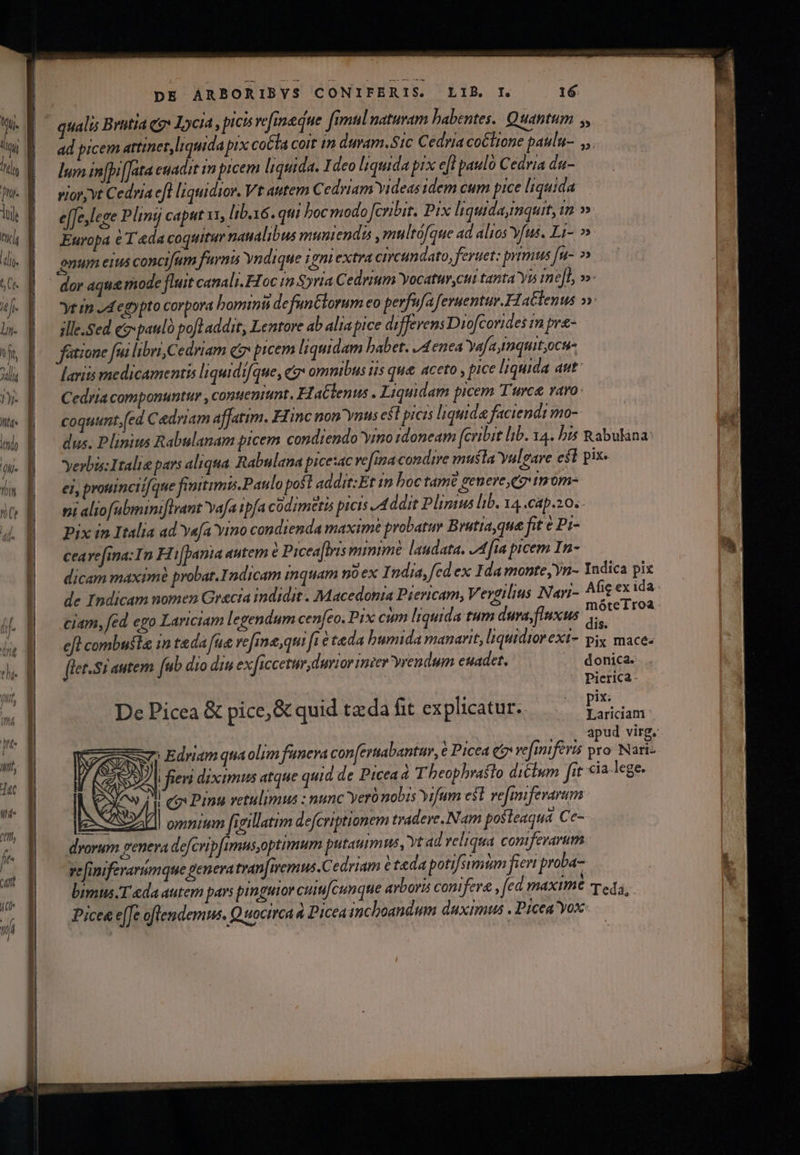 DE ARBORIBVS CONIFERIS. LIB. I. 16
qualis Brutia & Lycia, picis resinæque simul naturam habentes. Quantum „
ad picem attinet, liquida pix cocta coit in duram. Sic Cedria coctione paulu- „
lum inspissata euadit in picem liquida. Ideo liquida pix est paulò Cedria du-
rior, vt Cedria est liquidior. Vt autem Cedriam videas idem cum pice liquida
esse, lege Plinij caput xi, lib. 16. qui hoc modo scribit. Pix liquida, inquit, in »
Europa è Tæda coquitur naualibus muniendis, multósque ad alios vsus. Li- »
gnum eius concisum furnis vndique igni extra circundato, feruet: primus su- »
dor aquæ mode fluit canali. Hoc in Syria Cedrium vocatur, cui tanta vis inest, »
vt in Aegypto corpora hominū defunctorum eo perfusa seruentur. Hactenus »
ille. Sed & paulò post addit, Lentore ab alia pice differens Dioscorides in præ-
fatione sui libri, Cedriam & picem liquidam habet. Aenea vasa, inquit, ocu-
lariis medicamentis liquidisque, & omnibus iis quæ aceto, pice liquida aut
Cedria componuntur, conueniunt. Hactenus. Liquidam picem Turcæ raro
coquunt, sed Cædriam affatim. Hinc non vnus est picis liquidæ faciendi mo-
dus. Plinius Rabulanam picem condiendo vino idoneam scribit lib. 14. his Rabulana
verbis: Italiæ pars aliqua Rabulana pice: ac resina condire musta vulgare est pix.
ei, prouinciisque finitimis. Paulo post addit: Et in hoc tamē genere, & in om-
ni alio subministrant vasa ipsa cōdimētis picis. Addit Plinius lib. 14. cap. 20.
Pix in Italia ad vasa vino condienda maximè probatur Brutia, que fit è Pi-
cea resina: In Hispania autem è Piceastris minimè laudata. Asia picem In-
dicam maximè probat. Indicam inquam nō ex India, sed ex Ida monte, vn- Indica pix
de Indicam nomen Græcia indidit. Macedonia Piericam, Vergilius Nari- Asiæ ex ida
ciam, sed ego Lariciam legendum censeo. Pix cùm liquida tum dura, fluxus mōte Troa
dis.
est combustæ in tæda suæ resinæ, qui si è tæda humida manarit, liquidior exi- Pix mace-
stet. Si autem sub dio diu exsiccetur, durior inter vrendum euadet. donica.
Pierica
pix.
De Picea & pice, & quid tæda fit explicatur.
Lariciam
apud virg.
Edriam qua olim funera conseruabantur, è Picea & resiniferis pro Nari-
fieri diximus atque quid de Picea à Theophrasto dictum sit cia lege.
& Pinu retulimus: nunc verò nobis visum est resiniferarum
omnium sigillatim descriptionem tradere. Nam posteaquā Ce-
drorum genera descripsimus, optimum putauimus, vt ad reliqua coniferarum
resiniferarúmque genera transiremus. Cedriam è tæda potissimùm fieri proba-
bimus. Tæda autem pars pinguior cuiuscunque arboris coniferæ, sed maximè Teda,
Piceæ esse ostendemus. Quocirca à Picea inchoandum duximus. Picea vox